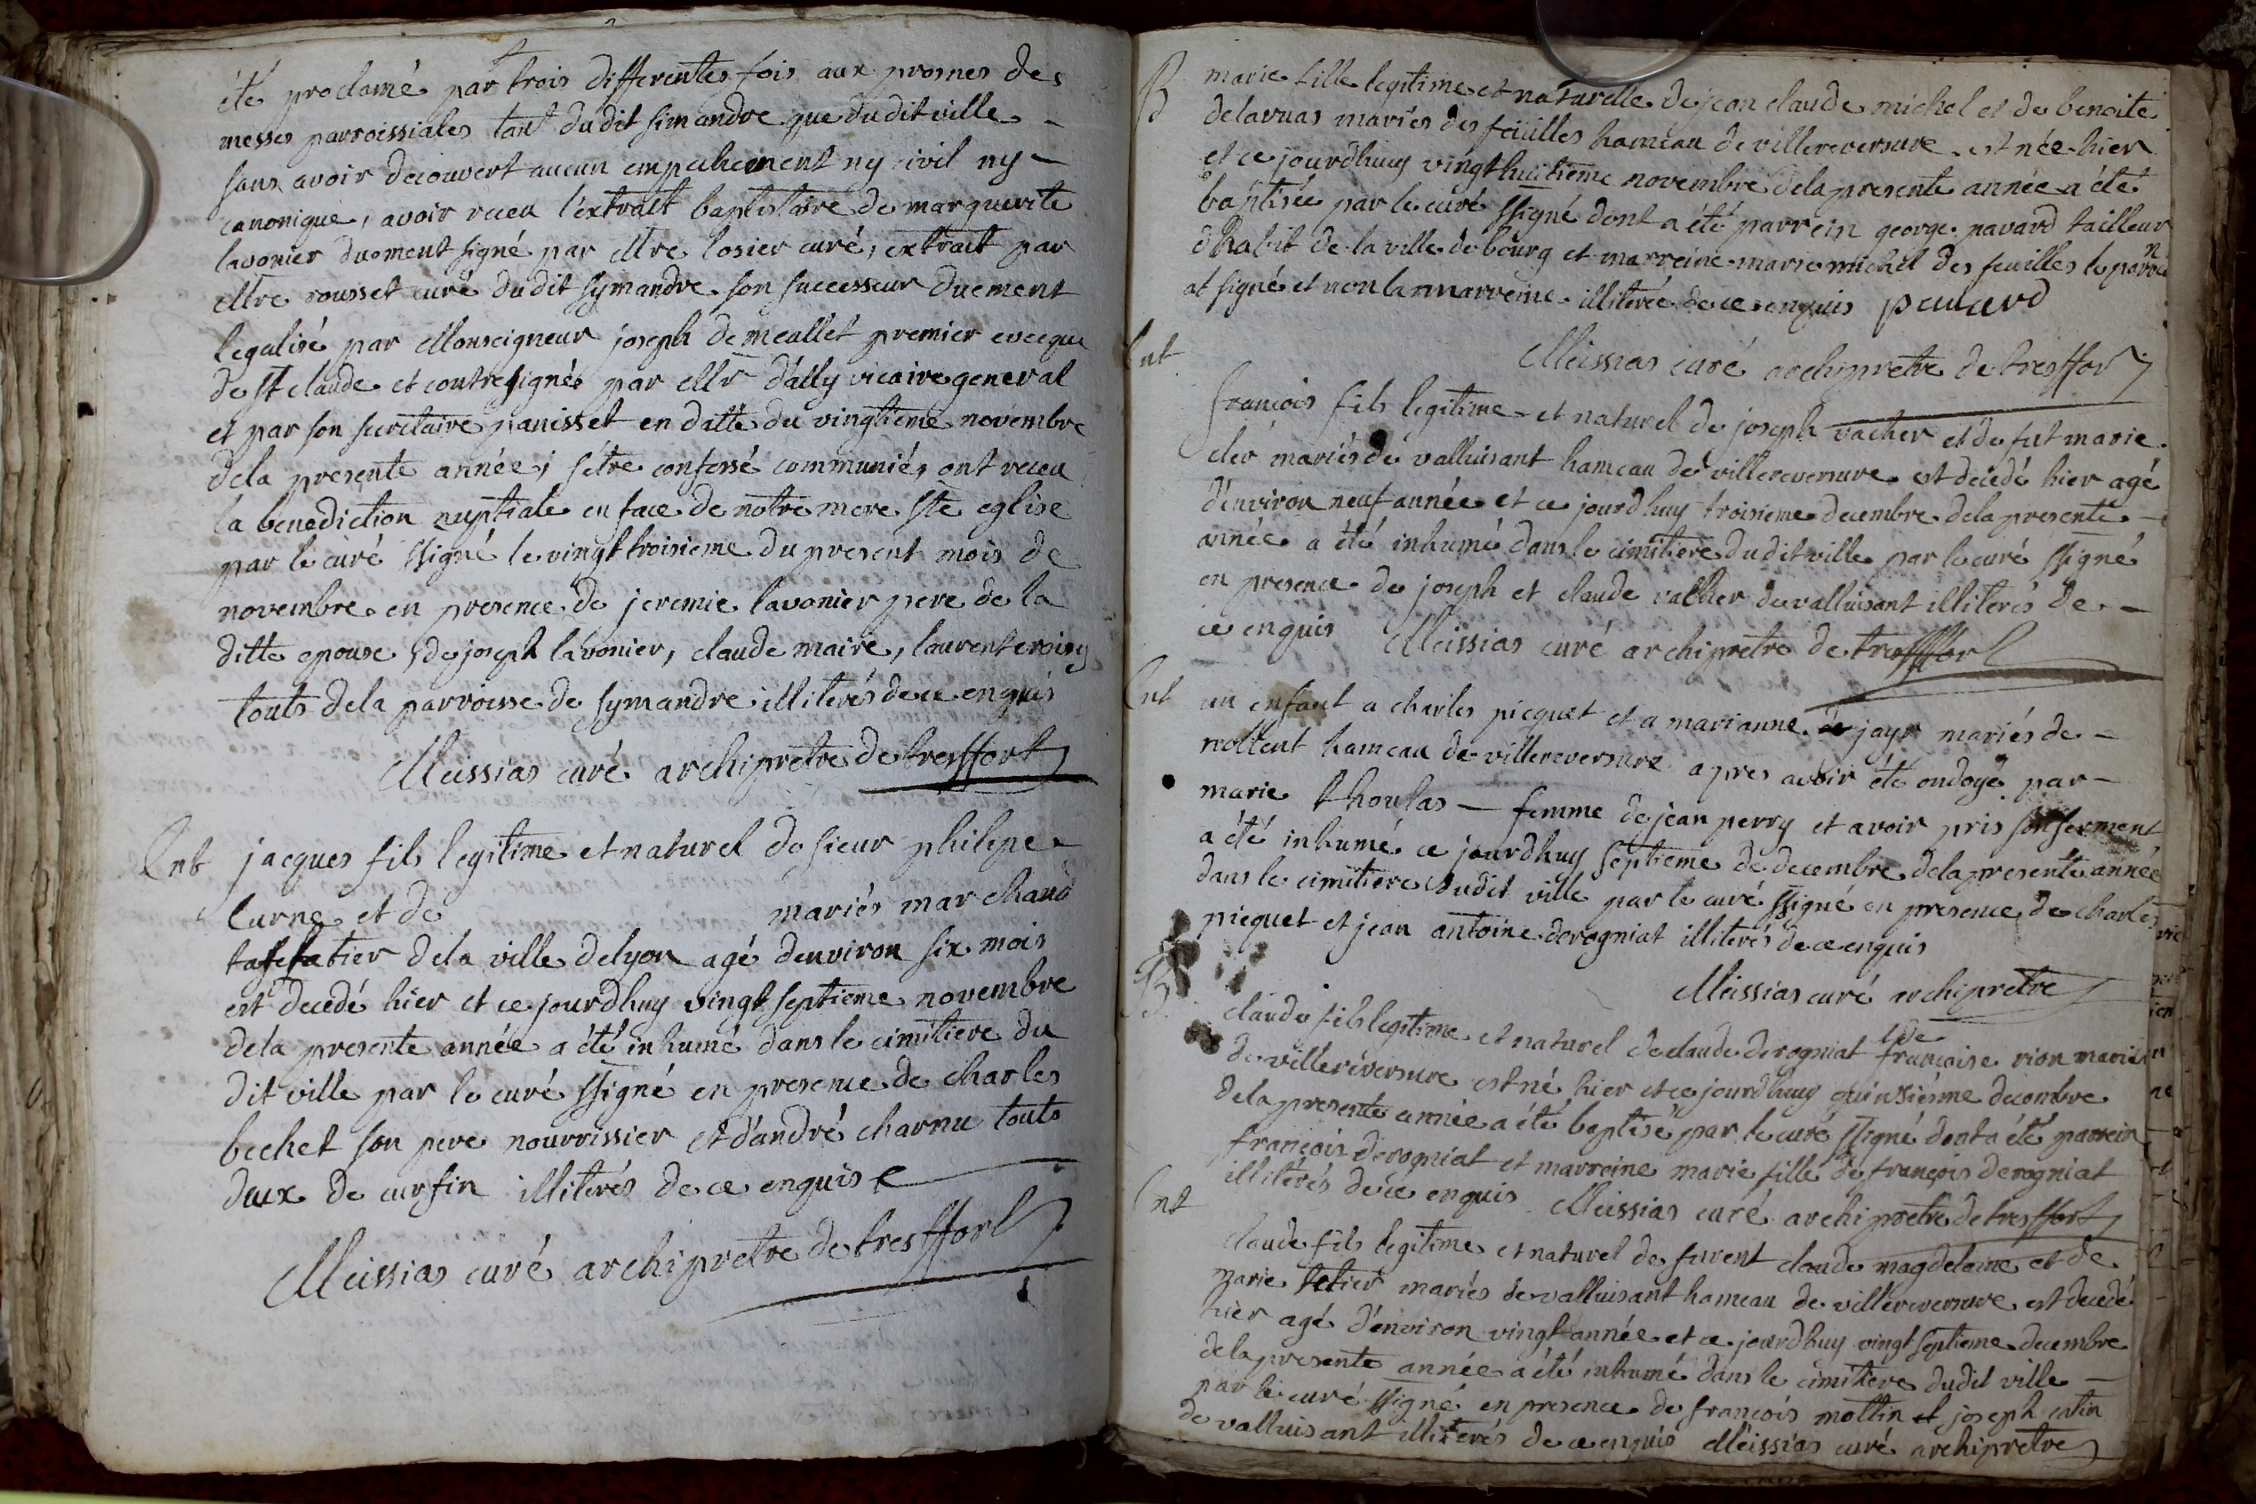 été proclamé par trois differentes fois aux prosnes des
messes parroissiales tant du dit simandre que du dit ville
sans avoir decouvert aucun empechement ny civil ny
canonique, avoir receu l'extrait baptistaire de marguerite
lavonier duement signé par Mre losier curé, extrait par
Mre rousset curé du dit symandre son successeur duement
legalisé par Monseigneur joseph de meallet premier eveque
de St claude et contresignés par Mr d'ally vicaire general
et par son secretaire panisset en datte du vingtieme novembre
dela presente année; s'etre confessé communiés, ont receu
la benediction nuptiale en face de notre mere Ste eglise
par le curé ssigné le vingt troisieme du present mois de
novembre en presence de jeremie lavonier pere de la
ditte epouse, de joseph lavonier, claude maire, laurent
touts dela parroisse de symandre illiterés de ce enquis
Meissias curé archipretre de tresffort
Ent jacques fils legitime et naturel de sieur philipe
lurne et de mariés marchand
taffetatier dela ville delyon agé d'environ six mois
est decedé hier et ce jourdhuy vingt septieme novembre
dela presente année a été inhumé dans le cimitiere du
dit ville par le curé ssigné en presence de charles
bechet son pere nourrissier et d'andré charnu touts
deux de curfin illiterés de ce enquis
Meissias curé archipretre de tresffort
B marie fille legitime et naturelle de jean claude michel et de benoite
delaruas mariés des feuilles hameau de villereversure est née hier
et ce jourdhuy vingt huitieme novembre dela presente année a été
baptisée par le curé ssigné dont a été parrein george pavard tailleur
d'habit de la ville de bourg et marreine marie michel des feuilles le parrein
at signé et non la marreine illiterée de ce enquis pavard
Meissias curé archipretre de tresffort
Ent
francois fils legitime et naturel de joseph vacher et de fut marie
cler mariés de valluisant hameau de villereversure est decedé hier agé
d'environ neuf année et ce jourdhuy troisieme decembre dela presente
année a été inhumé dans le cimitiere du dit ville par le curé ssigné
en presence de joseph et claude vacher de valluisant illiterés de
ce enquis Meissias curé archipretre de tresffort
Ent un enfant a charles picquet et a marianne jayr mariés de
nollent hameau de villereversure apres avoir été ondoyé par
marie thoulas femme de jean perry et avoir pris son serment
a été inhumé ce jourdhuy septieme de decembre dela presente année
dans le cimitiere du dit ville par le curé ssigné en presence de charles
picquet et jean antoine derogniat illiterés de ce enquis
Meissias curé archipretre
B
claude fils legitime et naturel de claude derogniat et de francoise rion mariés
de villereversure est né hier et ce jourdhuy quinsiéme decembre
dela presente année a été baptisé par le curé ssigné dont a été parrein
françois derogniat et marreine marie fille de françois derogniat
illitérés de ce enquis Meissias curé archipretre de tresffort
Ent
claude fils legitime et naturel de furent claude magdelaine et de
marie mariés de valluisant hameau de villereversure est decedé
hier agé d'environ vingt année et ce jourdhuy vingt septieme decembre
dela presente année a été inhumé dans le cimitiere dudit ville
par le curé ssigné en presence de francois mottin et joseph catin
de valluisant illiterés de ce enquis Meissias curé archipretre